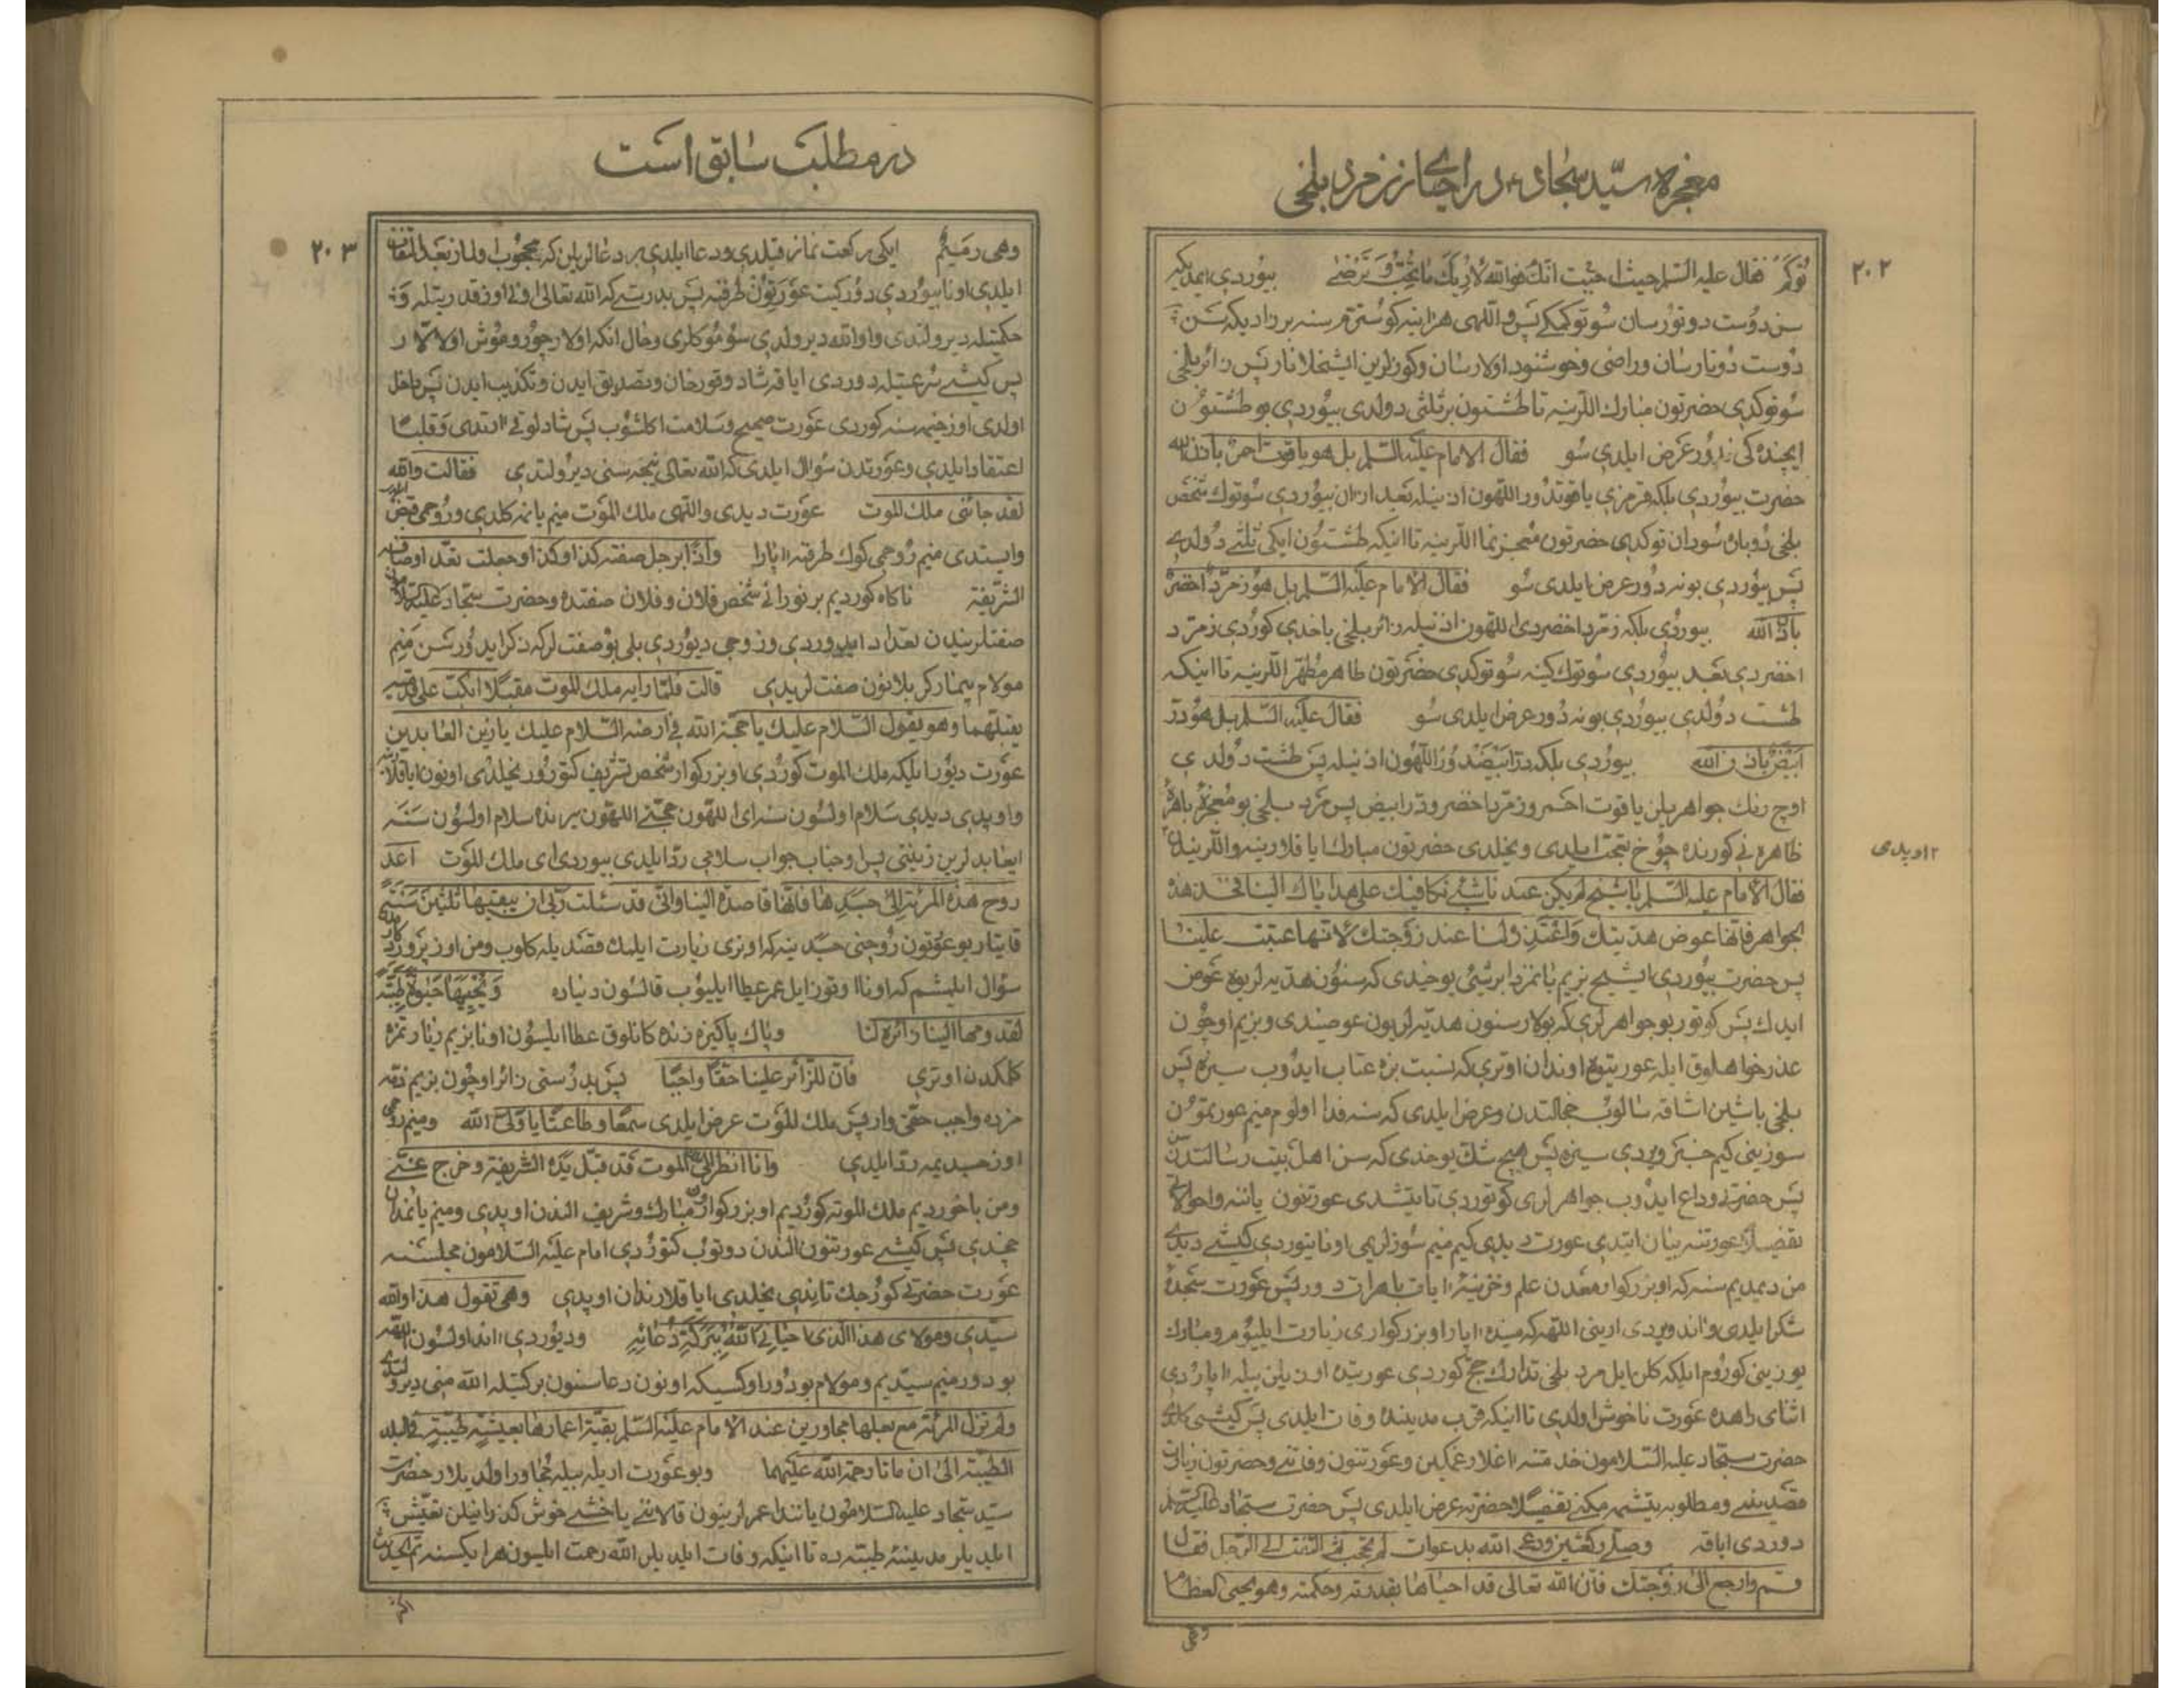 معجزه سیّد سجاد، در احیای زن مرد بلخی
۲۰۲
فقال علیه السّلم حیث احببت انّک فوالله لاُریک ما تحبّ و ترضی بیوردی ایمدیکه
سن دوست دوتورسان سو توکمکے پس واللهی هراینه کوسترم سنه بر زادیکه سن
دوست دوتارسان وراضی وخوشنود اولارسان وکوزلرین ایشخلانار پس زائر بلخی
سو توکدی حضرتون مبارک اللرینه تا طشتون بر ثلثی دولدی بیوردی بو طشتون
ایچنده کی ندور عرض ایلدی سو فقال الامام علیه السّلم بل هو یاقوت احمر باذن الله
حضرت بیوردی بلکه قرمزی یاقوتدور اللهون اذنیله بعد از ان بیوردی سو توک شخص
بلخی دوباره سودان توکدی حضرتون معجزنما اللرینه تا اینکه طشتون ایکی ثلثی دولدی
پس بیوردی بو نه دور عرض ایلدی سو فقال الامام علیه السّلم بل هو زمرّد اخضر
باذن الله بیوردی بلکه زمرد اخضردی اللهون اذنیله زائر بلخی باخدی کوردی زمرّد
اخضردی بعد بیوردی سو توک کینه سو توکدی حضرتون طاهر مطهّر اللرینه تا اینکه
طشت دولدی بیوردی بو نه دور عرض ایلدی سو فقال علیه السّلم بل هو درّ
ابیض باذن الله بیوردی بلکه درّ ابیضدور اللهون اذنیله پس طشت دولدی
اوچ رنک جواهریلن یاقوت احمر و زمرد اخضر و درّ ابیض پس مرد بلخی بو معجزه باهره
ظاهره نی کورنده چوخ تعجّب ایلدی ویخلدی حضرتون مبارک ایاقلارینه واللریندن
۲ اوپدی
فقال الامام علیه السّلم یا شیخ لم یکن عندنا شیٔ نکافیک علی هدایاک الینا فخذ هذه
الجواهر فانّها عوض هدیتک واعتذر لنا عند زوجتک لانّها عتبت علینا
پس حضرت بیوردی ای شیخ بزیم یانمزدا بر شیٔ یوخیدی که سنون هدیه لریوه عوض
ایدک پس کوتور بو جواهرلری که بولار سنون هدیه لریون عوضیدی وبزیم اوچون
عذرخواهلوق ایله عوریتوه اوندان اوتری که نسبت بزه عتاب ایدوب سیزه پس
بلخی باشین اشاقه سالوب خجالتدن وعرض ایلدی که سنه فدا اولوم منیم عورتمون
سوزینی کیم خبر ویردی سیزه پس هیچ شک یوخدی که سن اهل بیت رسالتدن
پس حضرته وداع ایدوب جواهرلری کوتوردی تا یتشدی عورتنون یاننه واحوالاتی
تفصیلاً عورتنه بیان ایتدی عورت دیدی کیم منیم سوزلریمی اونا یتوردی کیشی دیدی
من دیمدیم سنه که او بزرکوار معدن علم وخزینهٔ ایات باهرات دور پس عورت سجدهٔ
شکر ایلدی واند ویردی ارینی اللهه که منیده اپار او بزرکواری زیارت ایلیوم ومبارک
یوزینی کوروم ایلیکه کلن ایل مرد بلخی تدارک حج کوردی عوریتده اوزیلن بیله اپاردی
اثنای راهده عورت ناخوش اولدی تا اینکه قرب مدینده وفات ایلدی پس کیشی کلدی
حضرت سجّاد علیه السّلامون خدمتنه اغلار غمکین وعورتنون وفاتنی وحضرتون زیارت
قصدینی ومطلوبه یتشممکنی تفصیلاً حضرته عرض ایلدی پس حضرت سجّاد علیه السّلم
دوردی ایاقه وصلّی رکعتین ودعی الله بدعوات لم تحجب ثمّ التفت الی الرّجل فقال
قم وارجع الی زوجتک فانّ الله تعالی قد احیاها بقدرته وحکمته وهو یحیی العظام
وهی
در مطلب سابق است
۲۰۳
وهی رمیم ایکی رکعت نماز قیلدی ودعا ایلدی بر دعالریلن که محجوب اولماز بعد التفات
ایلدی اونا بیوردی دور کیت عورتون طرفنه پس بدرستیکه الله تعالی اونی اوز قدرتیله و
حکمتیله دیرولتدی و او الله دیرولدی سوموکلری وحال انکه اولار چوروموش اولالار
پس کیشی سرعتیله دوردی ایاقه شاد وقورخان وتصدیق ایدن وتکذیب ایدن پس داخل
اولدی اوز خیمه سنه کوردی عورت صحیح وسلامت اکلشوب پس شادلوقی ارتدی وقلباً
اعتقاد ایلدی وعورتدن سوال ایلدی که الله تعالی نیجه سنی دیرولتدی فقالت والله
لقد جائنی ملک الموت عورت دیدی واللهی ملک الموت منیم یانمه کلدی وروحمی قبض
وایستدی منیم روحمی کوک طرفنه اپارا واذا برجل صفته کذا وکذا وجعلت تعدّ اوصافه
الشّریفة ناکاه کوردیم بر نورانی شخص فلان وفلان صفتده وحضرت سجّاد علیه السّلامون
صفتلریندن تعداد ایدوردی وزوجی دیوردی بلی بو صفتلر که ذکر ایدورسن منیم
مولام بیمار کربلانون صفتلریدی قالت فلمّا راه ملک الموت مقبلاً انکبّ علی قدمیه
یقبّلهما وهو یقول السّلام علیک یا حجّة الله فی ارضه السّلام علیک یا زین العابدین
عورت دیور ایلیکه ملک الموت کوردی او بزرکوار شخص تشریف کتورور یخلدی اونون ایاقلارینه
واوپدی دیدی سلام اولسون سنه ای اللهون حجّتی اللهون یرنده سلام اولسون سنه
ایعابدلرین زینتی پس او جناب جواب سلامی ردّ ایلدی بیوردی ای ملک الموت اعد
روح هذه المرئة الی جسدها فانّها قاصدة الینا وانّی قد سئلت ربّی ان یبقیها ثلثین سنة
قایتار بو عورتون روحنی جسدینه که اوتری زیارت ایلمک قصدیله کلوب ومن اوز پروردکارمدن
سؤال ایلمشم که اونا اوتوز ایل عمر عطا ایلیوب قالسون دنیاده ویحییها حیوة طیّبة
لقدومها الینا زائرة لنا وپاک پاکیزه زنده کانلوق عطا ایلسون اونا بزیم زیارتمزه
کلمکدن اوتری فانّ للزّائر علینا حقّاً واجباً پس بدرستی زائر اوچون بزیم ذمّه
مزده واجب حقّی وار پس ملک الموت عرض ایلدی سمعاً وطاعتاً یا ولیّ الله ومنیم روحمی
اوز جسدیمه ردّ ایلدی وانا انظر الی ملک الموت قد قبّل یده الشریفة وخرج عنّی
ومن باخوردیم ملک الموته کوردیم او بزرکوارون مبارک وشریف الندن اوپدی ومنیم یانمدان
چخدی پس کیشی عورتنون الندن دوتوب کتوردی امام علیه السّلامون مجلسنه
عورت حضرتی کورجک تانیدی یخلدی ایاقلارندان اوپدی وهی تقول هذا والله
سیّدی ومولای هذا الّذی احیانی الله ببرکة دعائه ودیوردی اند اولسون اللهه
بودور منیم سیّدیم ومولام بودور او کسیکه اونون دعاسنون برکتیله الله منی دیرولتدی
ولم تزل المرئة مع بعلها مجاورین عند الامام علیه السّلم بقیّة اعمارهما بعیشة طیّبة فی البلد
الطیّبة الی ان ماتا رحمة الله علیهما وبو عورت اریله بیله مجاور اولدیلار حضرت
سیّد سجّاد علیه السّلامون یاننده عمرلرینون قالاننی یاخشی خوش کذرانیلن تعیّش
ایلدیلر مدینهٔ طیّبه ده تا اینکه وفات ایلدیلر الله رحمت ایلیون هر ایکیسنه تمّ الحدیث